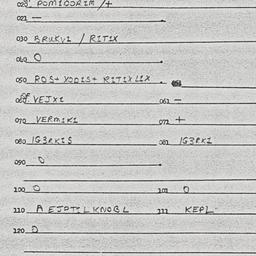 020. POMIDORIM /+
021 —
030 BRUKVI / RITIX
040 O
050 ROS+ XODIS+ RITIXLIX
060 VEJXI 061 —
070 VERMIKI 072 +
080 IG3RKIS 081 IG3RKI
090 O
100 O 101 O
110 A EJPTILKNOBL 111 KEPL
120 O